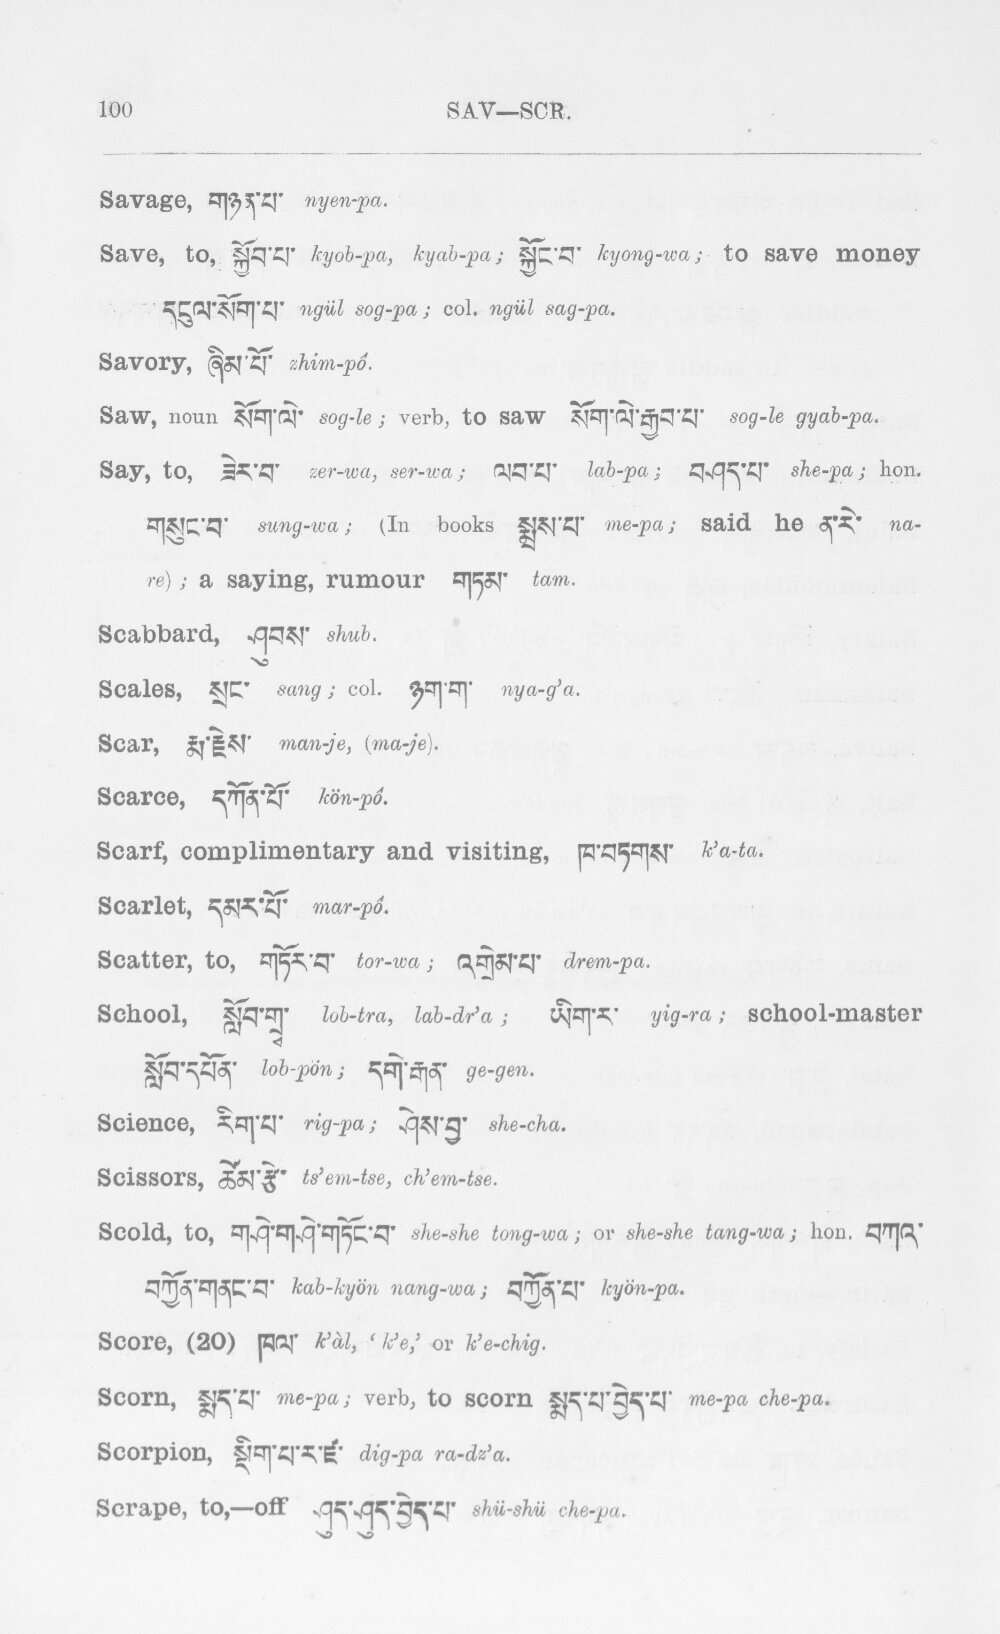 100 SAV—SCR.
Savage, གཉན་པ་ nyen-pa.
Save, to, སྐྱོབ་པ་ kyob-pa, kyab-pa; སྐྱོང་བ་ kyong-wa; to save money
དངུལ་སོག་པ་ ngül sog-pa; col. ngül sag-pa.
Savory, ཞིམ་པོ་ zhim-pó.
Saw, noun སོག་ལེ་ sog-le; verb, to saw སོག་ལེ་རྒྱབ་པ་ sog-le gyab-pa.
Say, to, ཟེར་བ་ zer-wa, ser-wa; ལབ་པ་ lab-pa; བཤད་པ་ she-pa; hon.
གསུང་བ་ sung-wa; (In books སྨྲས་པ་ me-pa; said he ན་རེ་ na-
re); a saying, rumour གཏམ་ tam.
Scabbard, ཤུབས་ shub.
Scales, སྲང་ sang; col. ཉག་ག་ nya-g'a.
Scar, རྨ་རྗེས་ man-je, (ma-je).
Scarce, དཀོན་པོ་ kön-pó.
Scarf, complimentary and visiting, ཁ་བཏགས་ k'a-ta.
Scarlet, དམར་པོ་ mar-pó.
Scatter, to, གཏོར་བ་ tor-wa; འགྲེམ་པ་ drem-pa.
School, སློབ་གྲྭ་ lob-tra, lab-dr'a; ཡིག་ར་ yig-ra; school-master
སློབ་དཔོན་ lob-pön; དགེ་རྒན་ ge-gen.
Science, རིག་པ་ rig-pa; ཤེས་བྱ་ she-cha.
Scissors, ཚེམ་རྩེ་ ts'em-tse, ch'em-tse.
Scold, to, གཤེ་གཤེ་གཏོང་བ་ she-she tong-wa; or she-she tang-wa; hon. བཀའ་
བཀྱོན་གནང་བ་ kab-kyön nang-wa; བཀྱོན་པ་ kyön-pa.
Score, (20) ཁལ་ k'àl, ‘k'e,’ or k'e-chig.
Scorn, སྨད་པ་ me-pa; verb, to scorn སྨད་པ་བྱེད་པ་ me-pa che-pa.
Scorpion, སྡིག་པ་ར་ཛ་ dig-pa ra-dz'a.
Scrape, to,—off ཤུད་ཤུད་བྱེད་པ་ shü-shü che-pa.